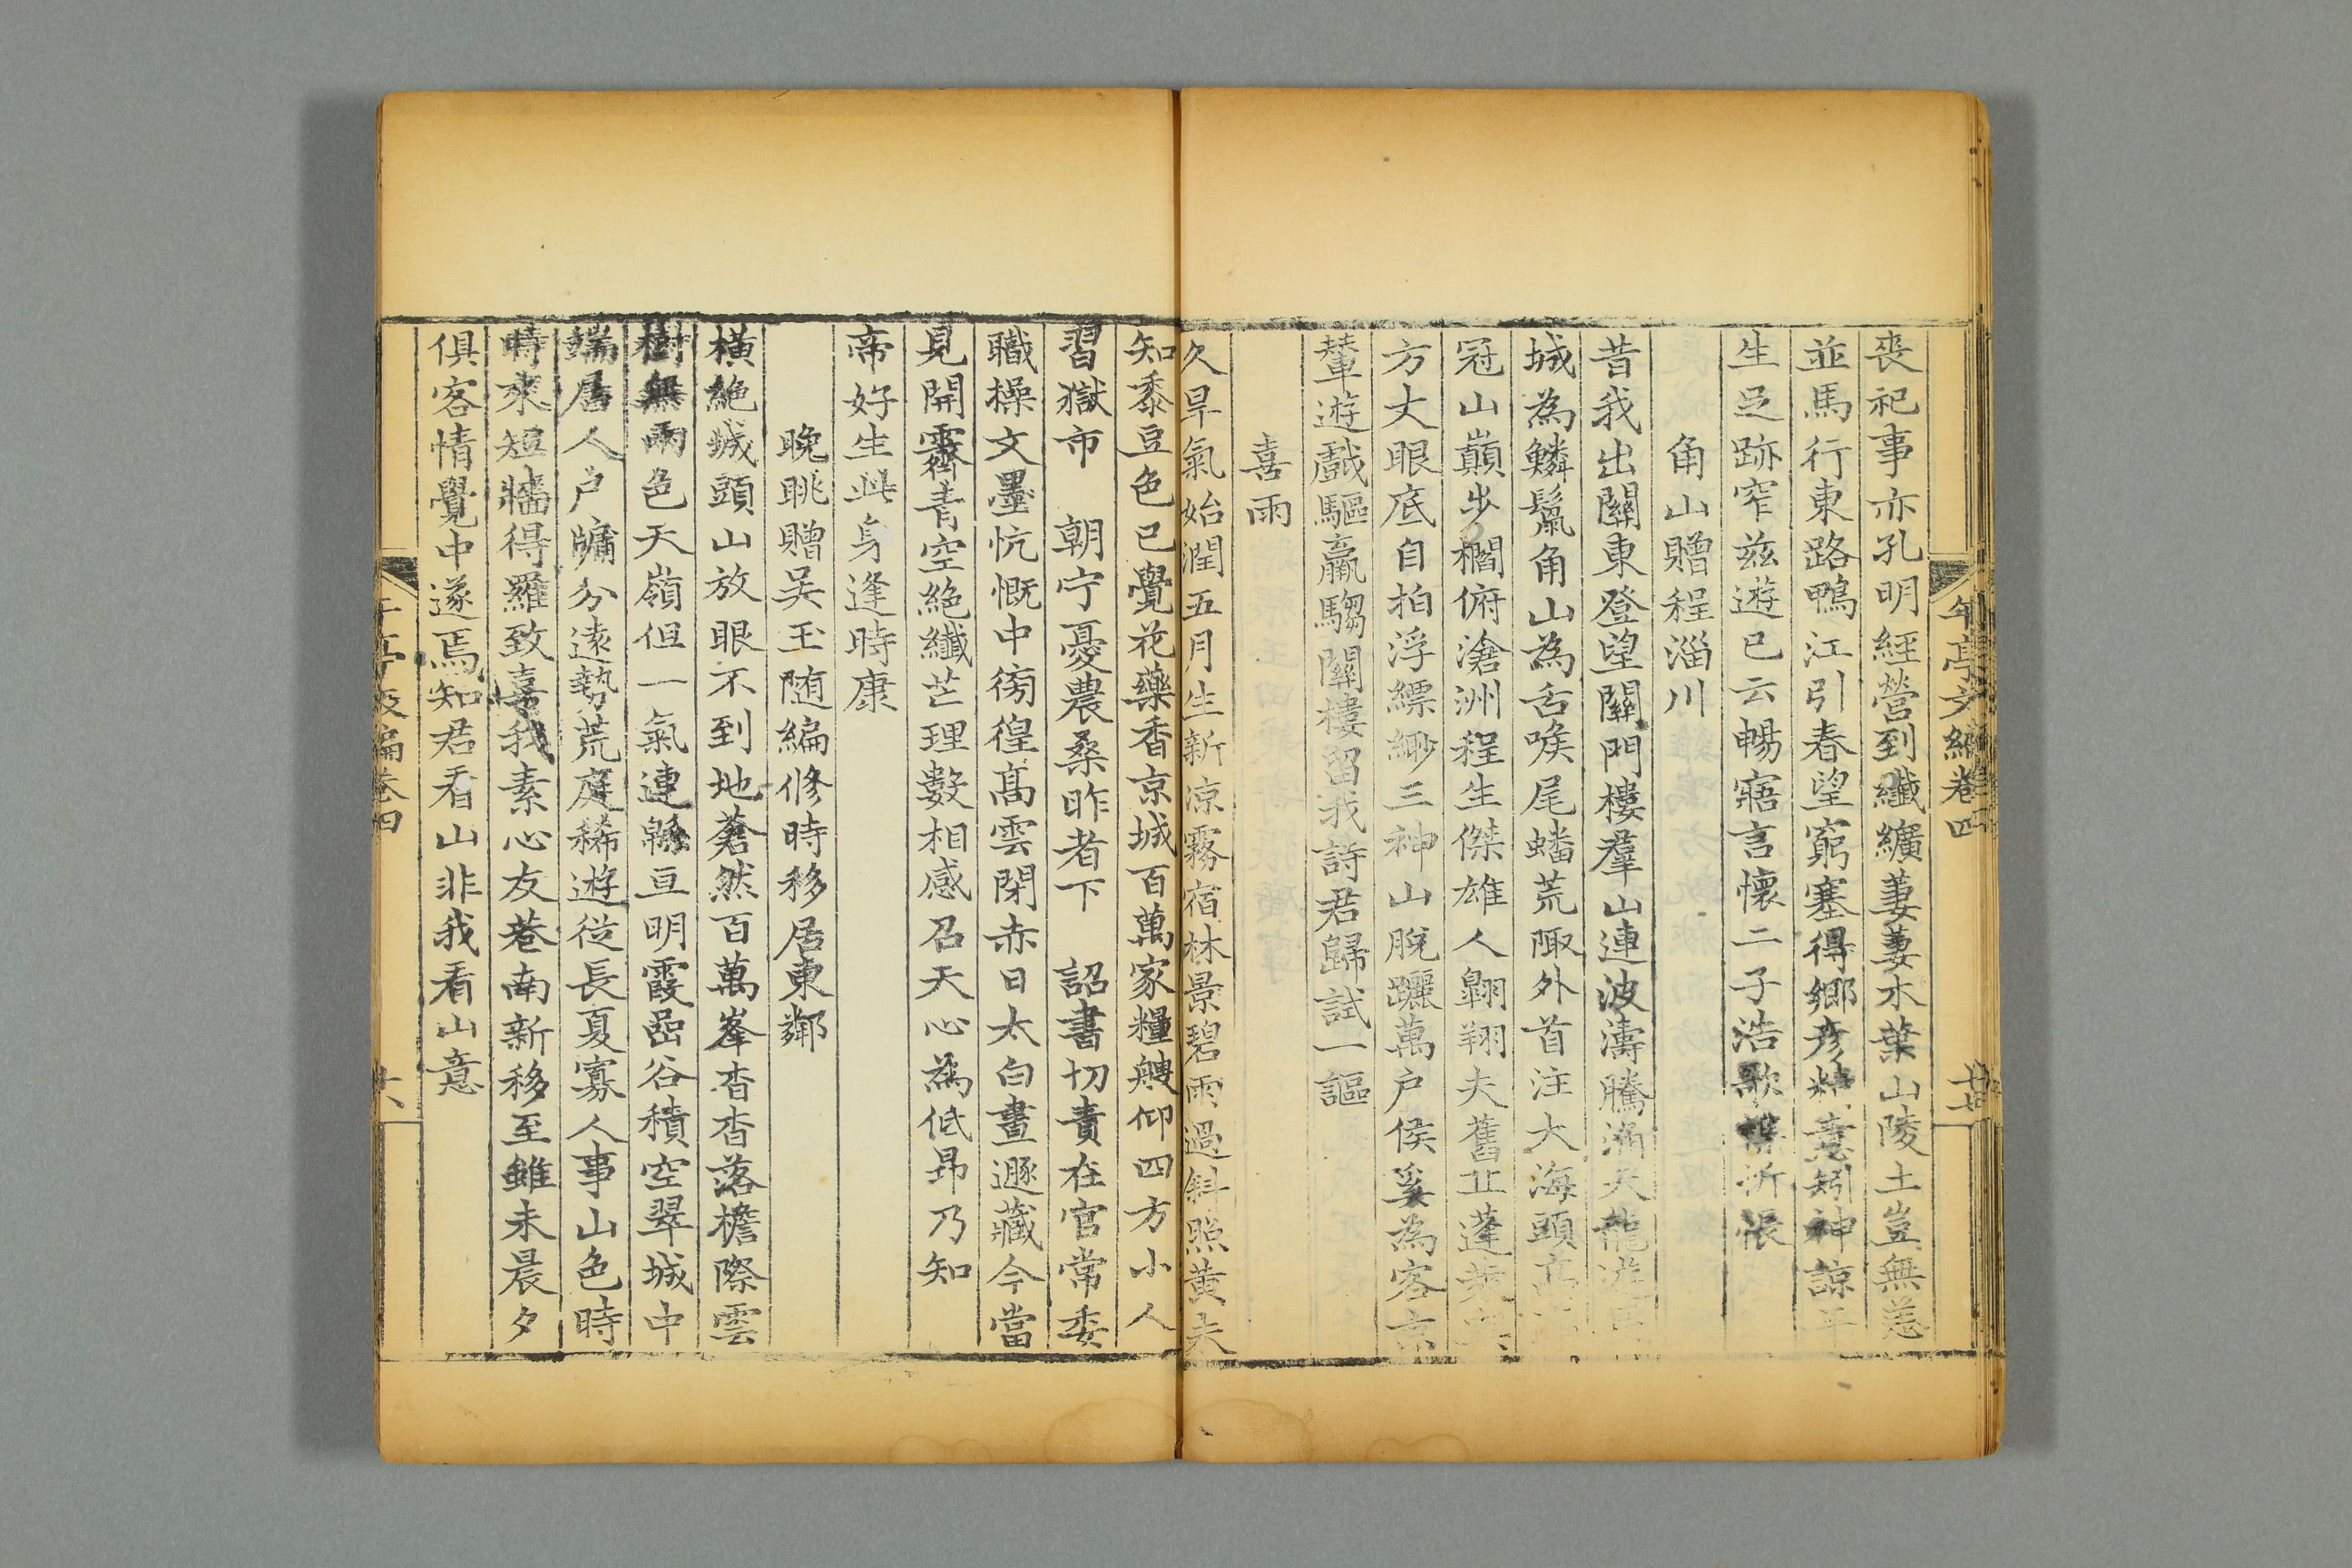 午亭文編卷四
十七
喪祀事亦孔明經營到纖纊萋萋水葉山陵土豈無恙
並馬行東路鴨江引春望窮塞得鄉彥精意矧神諒平
生足跡窄茲遊已云暢寤言懷二子浩歌悵
角山贈程淄川
昔我出關東登望關門樓羣山連波濤騰涌天龍遊
城為鱗鬣角山為舌喉尾蟠荒陬外首注大海頭
冠山巔步櫩俯滄洲程生傑雄人翱翔夫舊丘蓬
方丈眼底自拍浮縹緲三神山脫躧萬戶侯奚為客京
輦遊戲驅羸騶關樓留我詩君歸試一謳
喜雨
久旱氣始潤五月生新涼霧宿林景碧雨過斜照黃夫
知黍豆色已覺花藥香京城百萬家糧艘仰四方小人
習獄市 朝宁憂農桑昨者下 詔書切責在官常委
職操文墨忼慨中徬徨高雲閉赤日太白晝遯藏今當
見開霽青空絕纖芒理數相感召天心為低昂乃知
帝好生此身逢時康
晚眺贈吳玉随編修時移居東鄰
橫絕城頭山放眼不到地蒼然百萬峯杳杳落檐際雲
樹無雨色天嶺但一氣連緜亘明霞嵒谷積空翠城中
端居人戶牖分遠勢荒庭稀遊從長夏寡人事山色時
時來短牆得羅致喜我素心友巷南新移至雖未晨夕
俱客情覺中遂焉知君看山非我看山意
卷四